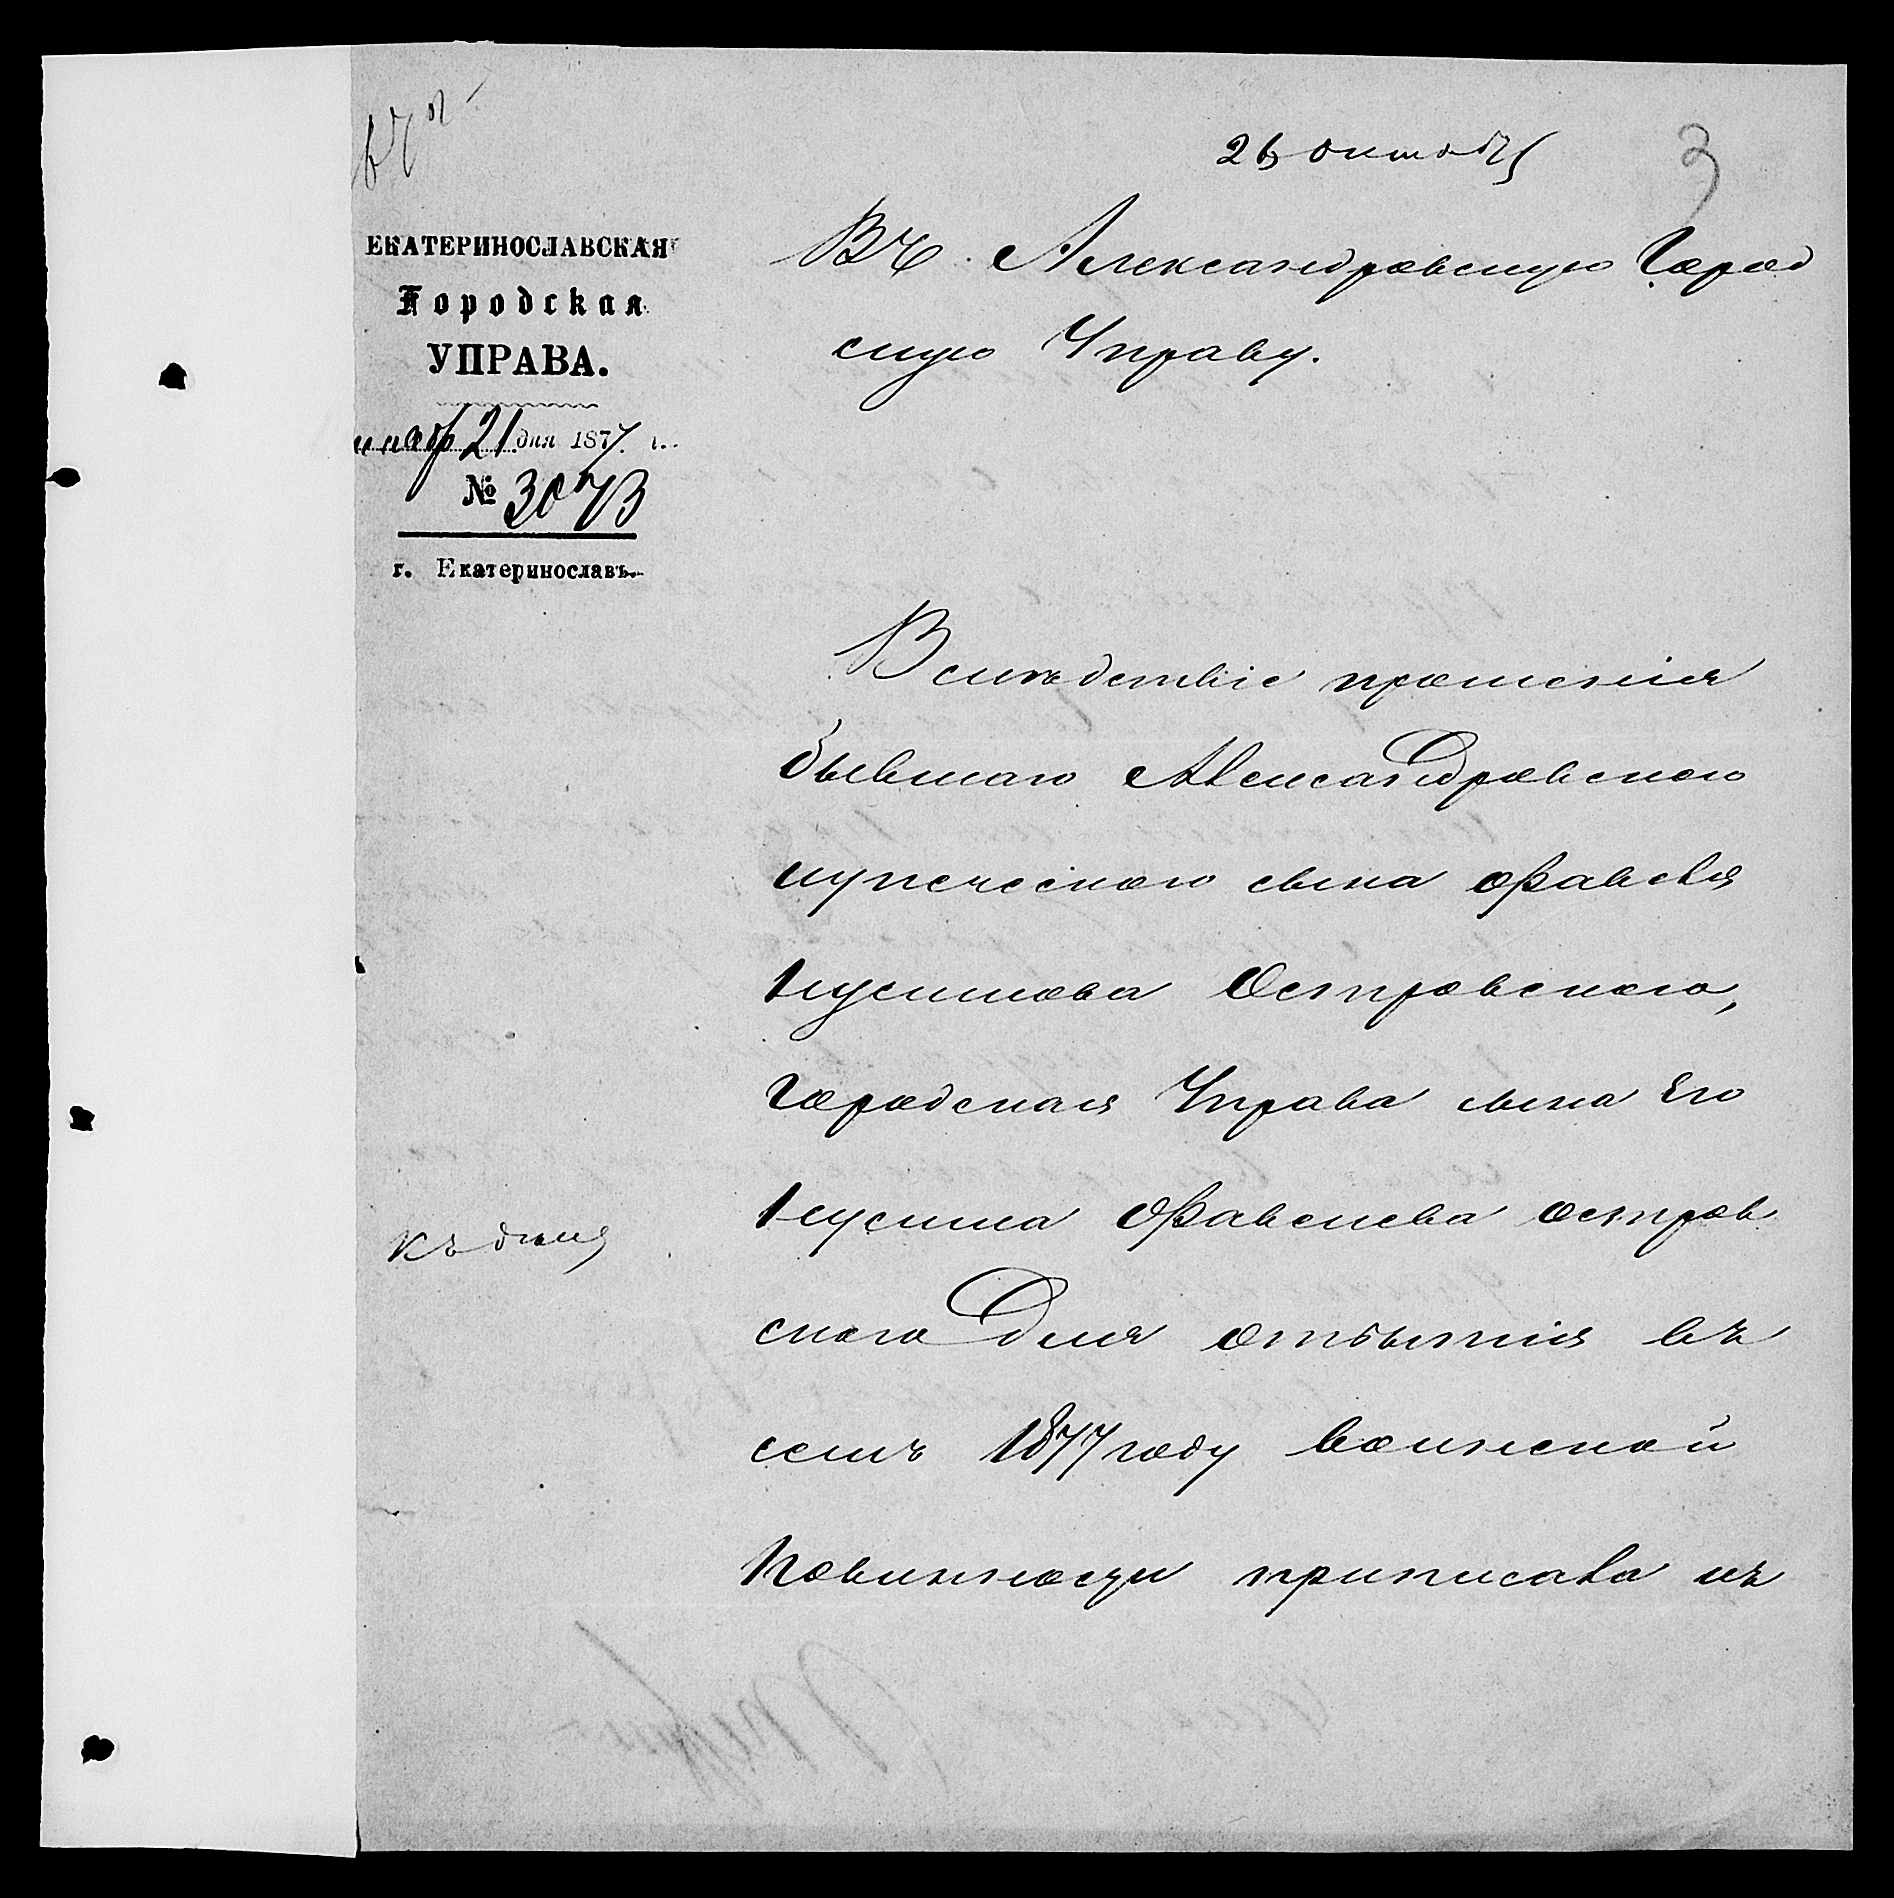 26 октябр
3
ЕКАТЕРИНОСЛАВСКАЯ
Городская
УПРАВА.
21 дня 1877 г.
№ 3073
г. Екатеринославъ.
Въ Александровскую Город
скую Управу.
Вслѣдствіе прошенія
бывшаго Александровскаго
купеческаго сына Файвеля
Нусимова Островскаго,
Городская Управа сына Его
Нусима Файвелева Остров
скаго для отбытія въ
семъ 1877 году воинской
повинности приписала къ
къ дѣлу